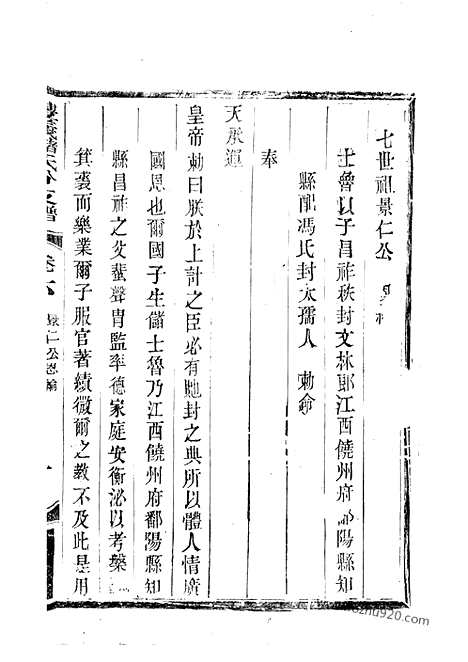 七世祖景仁公
士魯以子昌祚秩封文林郎江西饒州府鄱陽縣知
縣配馮氏封太孺人　勅命
奉
天承運
皇帝勅曰朕於上計之臣必有貤封之典所以體人情廣
國恩也爾國子生儲士魯乃江西饒州府鄱陽縣知
縣昌祚之父蜚聲胄監率德家庭安衡泌以考槃
箕裘而樂業爾子服官著績微爾之教不及此是用
儲氏分支譜
卷六
景仁公恩綸
zhu920.com